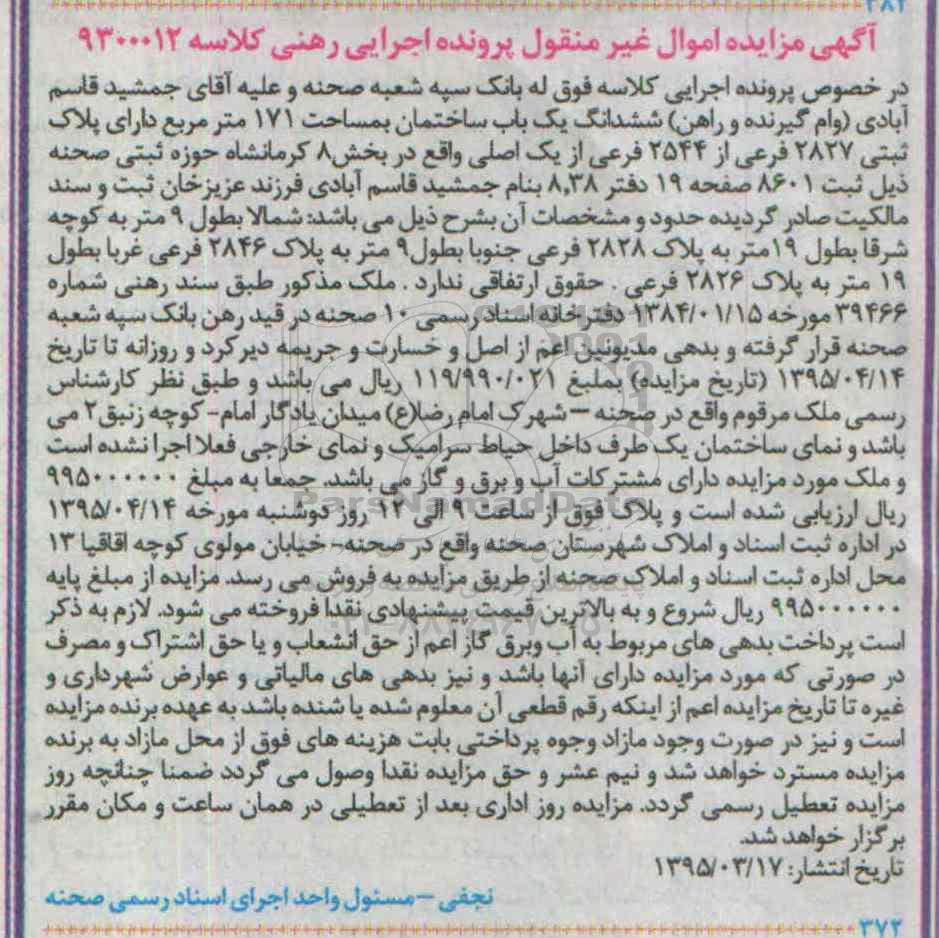 ۳۸۲
آگهی مزایده اموال غیر منقول پرونده اجرایی رهنی کلاسه ۹۳۰۰۰۱۲
در خصوص پرونده اجرایی کلاسه فوق له بانک سپه شعبه صحنه و علیه آقای جمشید قاسم
آبادی (وام گیرنده و راهن) ششدانگ یک باب ساختمان بمساحت ۱۷۱ متر مربع دارای پلاک
ثبتی ۲۸۲۷ فرعی از ۲۵۴۴ فرعی از یک اصلی واقع در بخش۸ کرمانشاه حوزه ثبتی صحنه
ذیل ثبت ۸۶۰۱ صفحه ۱۹ دفتر ۸,۳۸ بنام جمشید قاسم آبادی فرزند عزیزخان ثبت و سند
مالکیت صادر گردیده حدود و مشخصات آن بشرح ذیل می باشد: شمالا بطول ۹ متر به کوچه
شرقا بطول ۱۹متر به پلاک ۲۸۲۸ فرعی جنوبا بطول۹ متر به پلاک ۲۸۴۶ فرعی غربا بطول
۱۹ متر به پلاک ۲۸۲۶ فرعی . حقوق ارتفاقی ندارد . ملک مذکور طبق سند رهنی شماره
۳۹۴۶۶ مورخه ۱۳۸۴/۰۱/۱۵ دفترخانه اسناد رسمی ۱۰ صحنه در قید رهن بانک سپه شعبه
صحنه قرار گرفته و بدهی مدیونین اعم از اصل و خسارت و جریمه دیرکرد و روزانه تا تاریخ
۱۳۹۵/۰۴/۱۴ (تاریخ مزایده) بملیغ ۱۱۹/۹۹۰/۰۲۱ ریال می باشد و طبق نظر کارشناس
رسمی ملک مرقوم واقع در صحنه – شهرک امام رضا(ع) میدان یادگار امام- کوچه زنبق۲ می
باشد و نمای ساختمان یک طرف داخل حیاط سرامیک و نمای خارجی فعلا اجرا نشده است
و ملک مورد مزایده دارای مشترکات آب و برق و گاز می باشد. جمعا به مبلغ ۹۹۵۰۰۰۰۰۰
ریال ارزیابی شده است و پلاک فوق از ساعت ۹ الی ۱۲ روز دوشنبه مورخه ۱۳۹۵/۰۴/۱۴
در اداره ثبت اسناد و املاک شهرستان صحنه واقع در صحنه- خیابان مولوی کوچه اقاقیا ۱۳
محل اداره ثبت اسناد و املاک صحنه از طریق مزایده به فروش می رسد. مزایده از مبلغ پایه
۹۹۵۰۰۰۰۰۰ ریال شروع و به بالاترین قیمت پیشنهادی نقدا فروخته می شود. لازم به ذکر
است پرداخت بدهی های مربوط به آب وبرق گاز اعم از حق انشعاب و یا حق اشتراک و مصرف
در صورتی که مورد مزایده دارای آنها باشد و نیز بدهی های مالیاتی و عوارض شهرداری و
غیره تا تاریخ مزایده اعم از اینکه رقم قطعی آن معلوم شده یا شنده باشد به عهده برنده مزایده
است و نیز در صورت وجود مازاد وجوه پرداختی بابت هزینه های فوق از محل مازاد به برنده
مزایده مسترد خواهد شد و نیم عشر و حق مزایده نقدا وصول می گردد ضمنا چنانچه روز
مزایده تعطیل رسمی گردد. مزایده روز اداری بعد از تعطیلی در همان ساعت و مکان مقرر
برگزار خواهد شد.
تاریخ انتشار: ۱۳۹۵/۰۳/۱۷
نجفی – مسئول واحد اجرای اسناد رسمی صحنه
۳۷۲
ParsNamadData